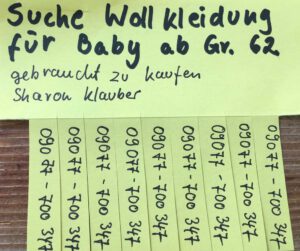 Suche Wollkleidung
für Baby ab Gr. 62
gebraucht zu kaufen
Sharon Klauber
09077-700 347
09077-700 347
09077-700 347
09077-700 347
09077-700 347
09077-700 347
09077-700 347
09077-700 347
09077-700 347